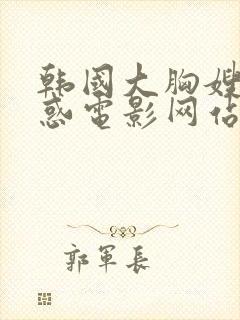 韩國大胸嫂
惑電影网佔
郭軍長